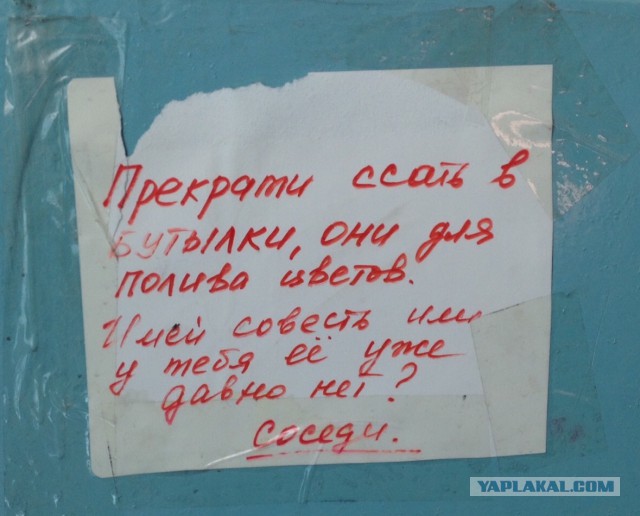 Прекрати ссать в
бутылки, они для
полива цветов.
Имей совесть или
у тебя её уже
давно нет?
Соседи.
YAPLAKAL.COM